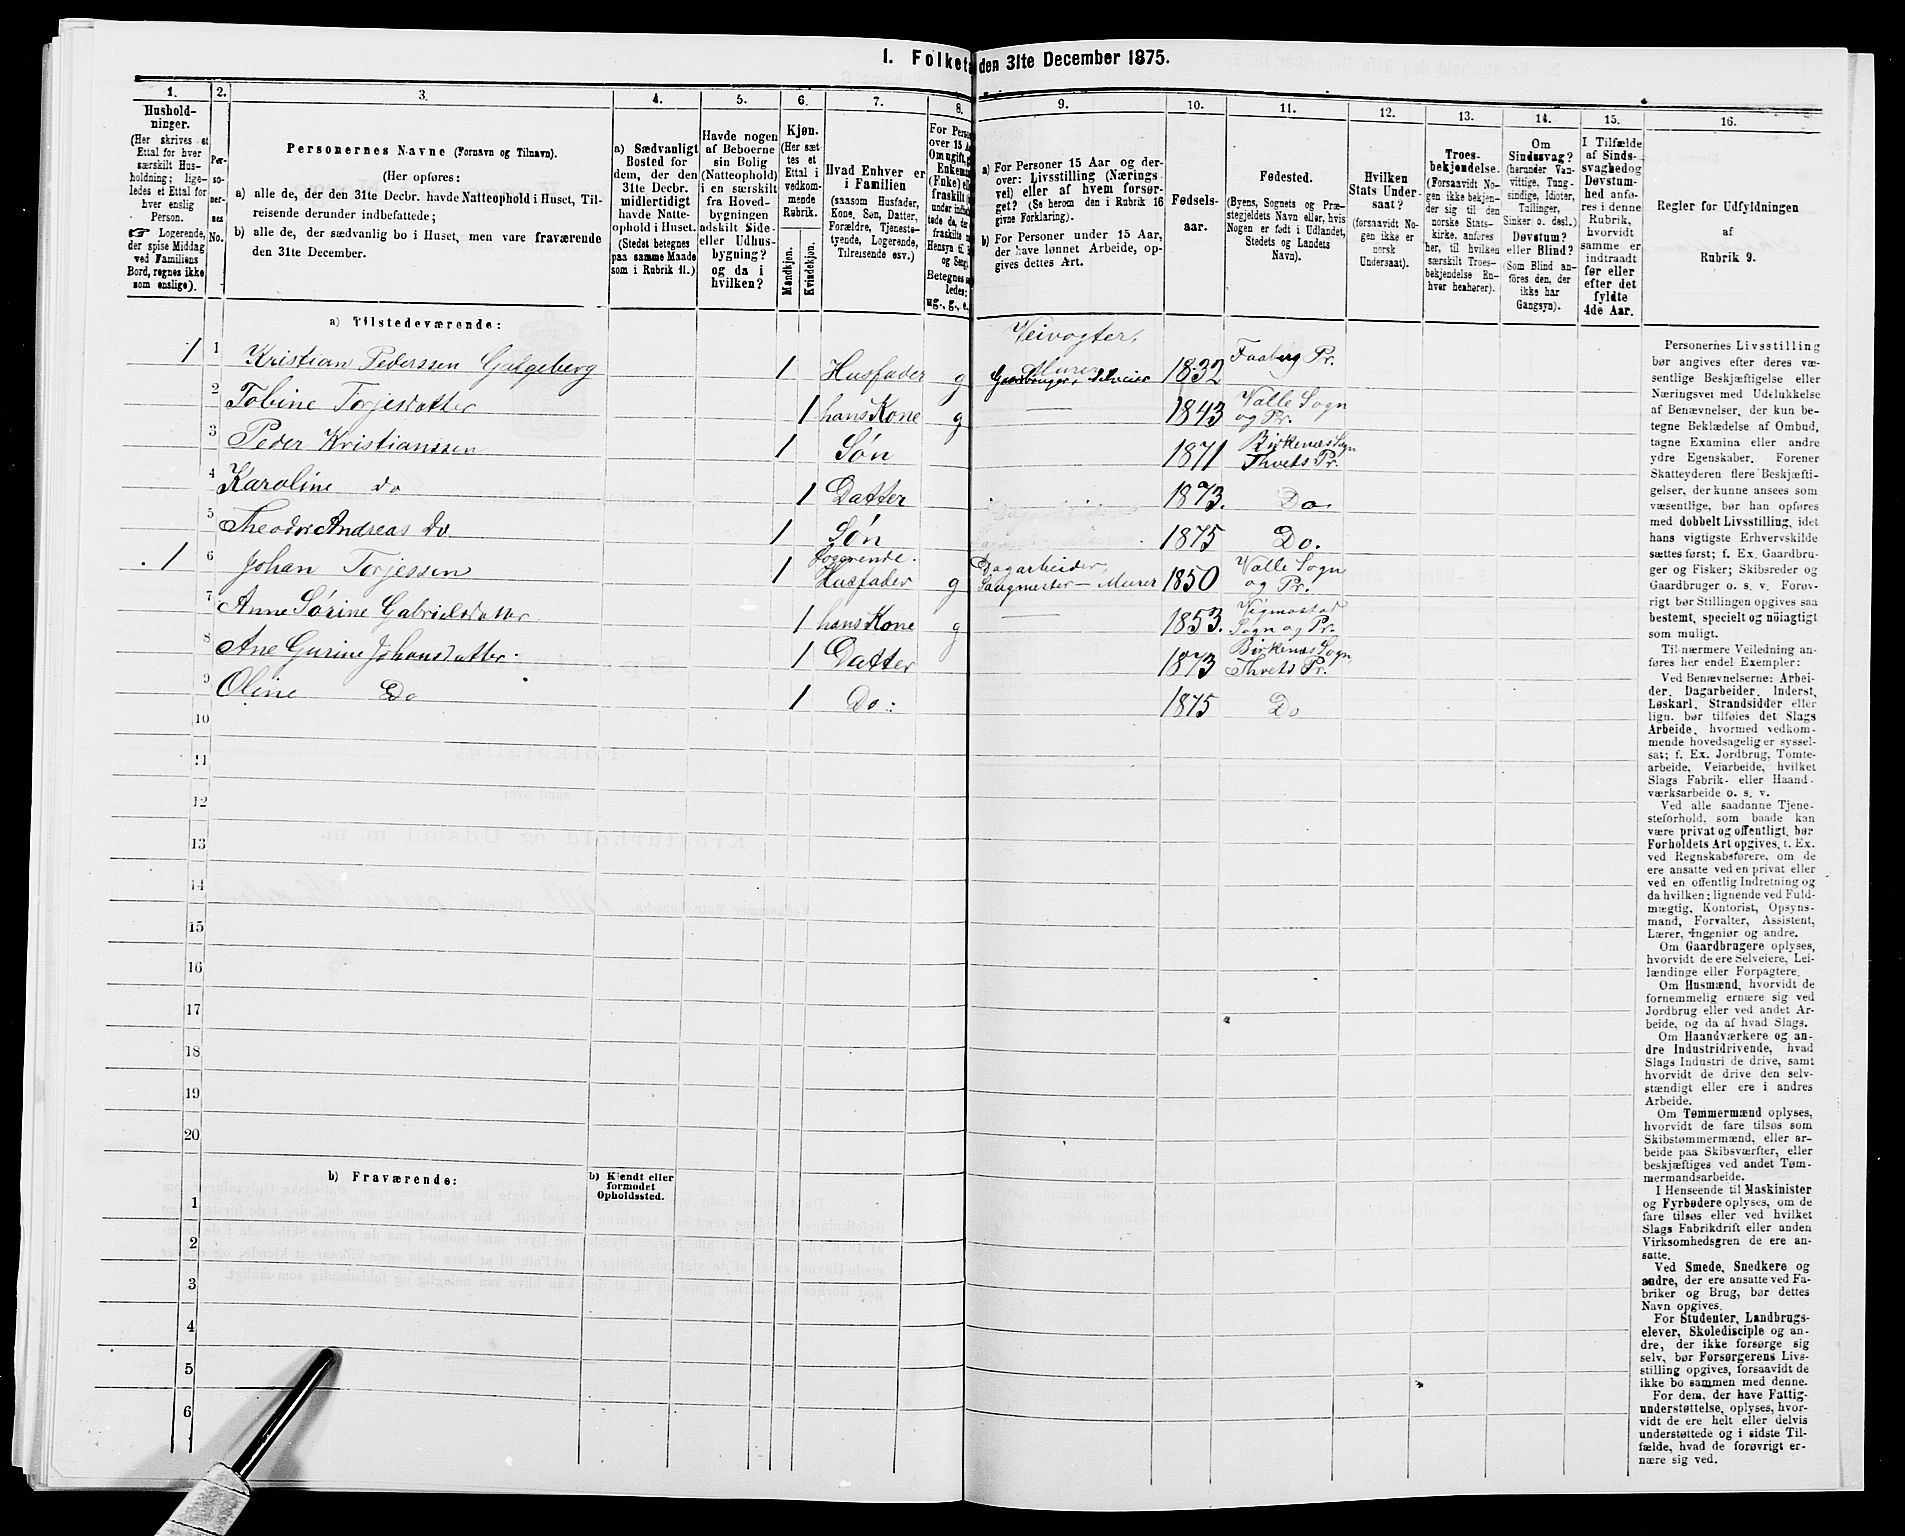 1. Folketæ den 31te December 1875.
1. 2. 3. 4. 5. 6. 7. 8. 9. 10. 11. 12. 13. 14. 15. 16.
Hushold-
ninger.
(Her skrives et
Ettal for hver
særskilt Hus-
holdning; lige-
ledes et Ettal for
hver enslig
Person.
☞ Logerende,
der spise Middag
ved Familiens
Bord, regnes ikke
som enslige).
Per-
so-
ner-
nes
No.
Personernes Navne (Fornavn og Tilnavn).
(Her opføres:
a) alle de, der den 31te Decbr. havde Natteophold i Huset, Til-
reisende derunder indbefattede;
b) alle de, der sædvanlig bo i Huset, men vare fraværende
den 31te December.
a) Sædvanligt
Bosted for
dem, der den
31te Decbr.
midlertidigt
havde Natte-
ophold i Huset.
(Stedet betegnes
paa samme Maade
som i Rubrik 11.)
Havde nogen
af Beboerne
sin Bolig
(Natteophold)
i en særskilt
fra Hoved-
bygningen
adskilt Side-
eller Udhus-
bygning?
og da i
hvilken?
Kjøn.
(Her sæt-
tes et
Ettal i
vedkom-
mende
Rubrik.
Mandkjøn.
Kvindekjøn.
Hvad Enhver er
i Familien
(saasom Husfader,
Kone, Søn, Datter,
Forældre, Tjeneste-
tyende, Logerende,
Tilreisende osv.)
For Perso
over 15 Aa
Om ugift, g
Enkem
(Enke) ell
fraskilt
Betegnes sa
ledes:
ug., g., e.
a) For Personer 15 Aar og der-
over: Livsstilling (Nærings-
vei) eller af hvem forsør-
get? (Se herom den i Rubrik 16
givne Forklaring).
b) For Personer under 15 Aar,
der have lønnet Arbeide, op-
gives dettes Art.
Fødsels-
aar.
Fødested.
(Byens, Sognets og Præ-
stegjeldets Navn eller, hvis
Nogen er født i Udlandet,
Stedets og Landets
Navn).
Hvilken
Stats Under-
saat?
(forsaavidt No-
gen ikke er
norsk
Undersaat).
Troes-
bekjendelse.
(Forsaavidt No-
gen ikke bekjen-
der sig til den
norske Stats-
kirke, anføres
her, til hvilken
særskilt Troes-
bekjendelse En-
hver henhører).
Om
Sindssvag?
(herunder Van-
vittige, Tung-
sindige, Idioter,
Tullinger,
Sinker o. desl.)
Døvstum?
eller Blind?
(Som Blind an-
føres den, der
ikke har
Gangsyn).
I Tilfælde
af Sinds-
svaghed og
Døvstum-
hed anfø-
res i denne
Rubrik,
hvorvidt
samme er
indtraadt
før eller
efter det
fyldte
4de Aar.
Regler for Udfyldningen
af
Rubrik 9.
a) Tilstedeværende:
1 1 Kristian Pederssen Galgeberg 1 Husfader g Veivogter, Murer Gaardbruger, Selveier 1832 Faaberg Pr.
2 Tobine Torjesdatter 1 hans Kone g — 1843 Valle Sogn og Pr.
3 Peder Kristianssen 1 Søn 1871 Birkenæs Sogn Thvets Pr.
4 Karoline do 1 Datter 1873. Do
5 Theodor Andreas Do. 1 Søn 1875 Do.
1 6 Johan Torjessen 1 Logerende. Husfader g Dagarbeider, Murer 1850 Valle Sogn og Pr.
7 Anne Sørine Gabrielsdatter 1 hans Kone g — 1853. Vigmostad Sogn og Pr.
8 Ane Gurine Johansdatter 1 Datter 1873 Birkenæs Sogn, Thvets Pr.
9 Oline Do 1 Do: 1875 Do
10
11
12
13
14
15
16
17
18
19
20
b) Fraværende:
b) Kjendt eller
formodet
Opholdssted.
1
2
3
4
5
6
Personernes Livsstilling
bør angives efter deres væ-
sentlige Beskjæftigelse eller
Næringsvei med Udelukkelse
af Benævnelser, der kun be-
tegne Beklædelse af Ombud,
tagne Examina eller andre
ydre Egenskaber. Forener
Skatteyderen flere Beskjæfti-
gelser, der kunne ansees som
væsentlige, bør han opføres
med dobbelt Livsstilling, idet
hans vigtigste Erhvervskilde
sættes først; f. Ex. Gaardbru-
ger og Fisker; Skibsreder og
Gaardbruger o. s. v. Forøv-
rigt bør Stillingen opgives saa
bestemt, specielt og nøiagtigt
som muligt.
Til nærmere Veiledning an-
føres her endel Exempler:
Ved Benævnelserne: Arbei-
der, Dagarbeider, Inderst,
Løskarl, Strandsidder eller
lign. bør tilføies det Slags
Arbeide, hvormed vedkom-
mende hovedsagelig er syssel-
sat; f. Ex. Jordbrug, Tomte-
arbeide, Veiarbeide, hvilket
Slags Fabrik- eller Haand-
værksarbeide o. s. v.
Ved alle saadanne Tjene-
steforhold, som baade kan
være privat og offentligt, bør
Forholdets Art opgives, t. Ex.
ved Regnskabsførere, om de
ere ansatte ved en privat eller
ved en offentlig Indretning og
da hvilken; lignende ved Fuld-
mægtig, Kontorist, Opsyns-
mand, Forvalter, Assistent,
Lærer, Ingeniør og andre.
Om Gaardbrugere oplyses,
hvorvidt de ere Selveiere, Lei-
lændinge eller Forpagtere.
Om Husmænd, hvorvidt de
fornemmelig ernære sig ved
Jordbrug eller ved andet Ar-
beide, og da af hvad Slags.
Om Haandværkere og an-
dre Industridrivende, hvad
Slags Industri de drive, samt
hvorvidt de drive den selv-
stændigt eller ere i andres
Arbeide.
Om Tømmermænd oplyses,
hvorvidt de fare tilsøs som
Skibstømmermænd, eller ar-
beide paa Skibsværfter, eller
beskjæftiges ved andet Tøm-
mermandsarbeide.
I Henseende til Maskinister
og Fyrbødere oplyses, om de
fare tilsøs eller ved hvilket
Slags Fabrikdrift eller anden
Virksomhedsgren de ere an-
satte.
Ved Smede, Snedkere og
andre, der ere ansatte ved Fa-
briker og Brug, bør dettes
Navn opgives.
For Studenter, Landbrugs-
elever, Skoledisciple og an-
dre, der ikke forsørge sig
selv, bør Forsørgerens Livs-
stilling opgives, forsaavidt de
ikke bo sammen med denne.
For dem, der have Fattig-
understøttelse, oplyses, hvor-
vidt de ere helt eller delvis
understøttede og i sidste Til-
fælde, hvad de forøvrigt er-
nære sig ved.